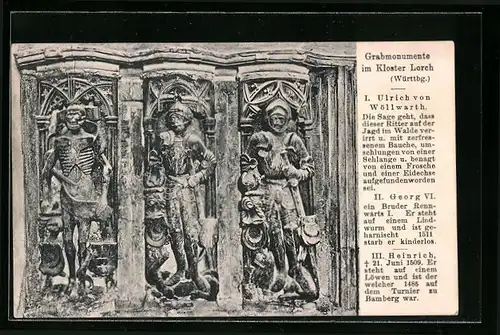 Grabmonumente
im Kloster Lorch
(Württbg.)
I. Ulrich von
Wöllwarth.
Die Sage geht, dass
dieser Ritter auf der
Jagd im Walde ver-
irrt u. mit zerfres-
senem Bauche, um-
schlungen von einer
Schlange u. benagt
von einem Frosche
und einer Eidechse
aufgefundenworden
sei.
II. Georg VI.
ein Bruder Renn-
warts I. Er steht
auf einem Lind-
wurm und ist ge-
harnischt 1511
starb er kinderlos.
III. Heinrich,
† 21. Juni 1509. Er
steht auf einem
Löwen und ist der
welcher 1485 auf
dem Turnier zu
Bamberg war.